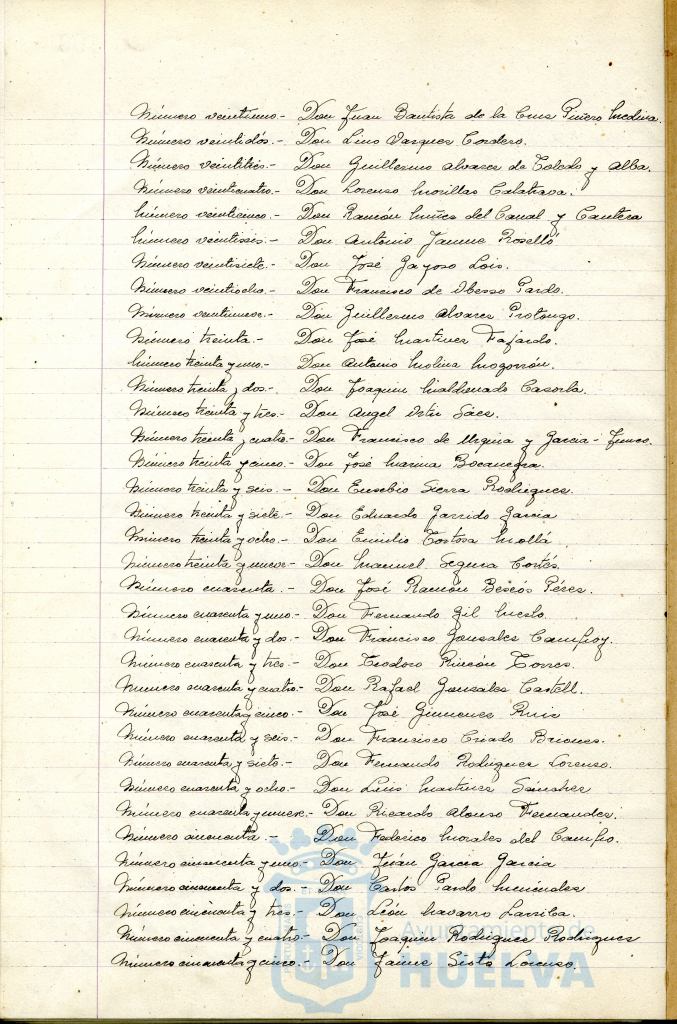 Número veintiuno.- Don Juan Bautista de la Cruz Piñero Medina.
Número veintidós.- Don Lino Vazquez Cordero.
Número veintitrés.- Don Guillermo Alvarez de Toledo y Alba.
Número veinticuatro.- Don Lorenzo Morillas Calatrava.
Número veinticinco.- Don Ramón Muñoz del Canal y Cantera
Número veintiseis.- Don Antonio Jaume Roselló
Número veintisiete.- Don José Gayoso Lois.
Número veintiocho.- Don Francisco de Obesso Pardo.
Número veintinueve.- Don Guillermo Alvarez Prolongo.
Número treinta.- Don José Martinez Fajardo.
Número treinta y uno.- Don Antonio Molina Mogorrón.
Número treinta y dos.- Don Joaquin Maldonado Casorla.
Número treinta y tres.- Don Angel Ortiz Sáes.
Número treinta y cuatro.- Don Francisco de Urquia y Garcia-
Número treinta y cinco.- Don José Marina Bocanegra.
Número treinta y seis.- Don Eusebio Sierra Rodriguez.
Número treinta y siete.- Don Eduardo Garrido Garcia
Número treinta y ocho.- Don Emilio Tortosa Mollá.
Número treinta y nueve- Don Manuel Segura Cortés.
Número cuarenta.- Don José Ramón Bescós Pérez.
Número cuarenta y uno.- Don Fernando Gil
Número cuarenta y dos.- Don Francisco Gonzalez Campoy.
Número cuarenta y tres.- Don Teodoro Rincón Torres.
Número cuarenta y cuatro.- Don Rafael Gonzalez Castell.
Número cuarenta y cinco.- Don José Gimenez Ruiz
Número cuarenta y seis.- Don Francisco Criado Briones.
Número cuarenta y siete.- Don Fernando Rodriguez Lorenzo.
Número cuarenta y ocho.- Don Luis Martinez Sánchez
Número cuarenta y nueve.- Don Ricardo Alonso Fernandez.
Número cincuenta.- Don Federico Morales del Campo.
Número cincuenta y uno.- Don Juán Garcia Garcia
Número cincuenta y dos.- Don Carlos Pardo Menéndez
Número cincuenta y tres.- Don León Navarro Larriba.
Número cincuenta y cuatro.- Don Joaquin Rodriguez Rodriguez
Número cincuenta y cinco.- Don Jaime Sistó Lorenzo.
Ayuntamiento de
HUELVA